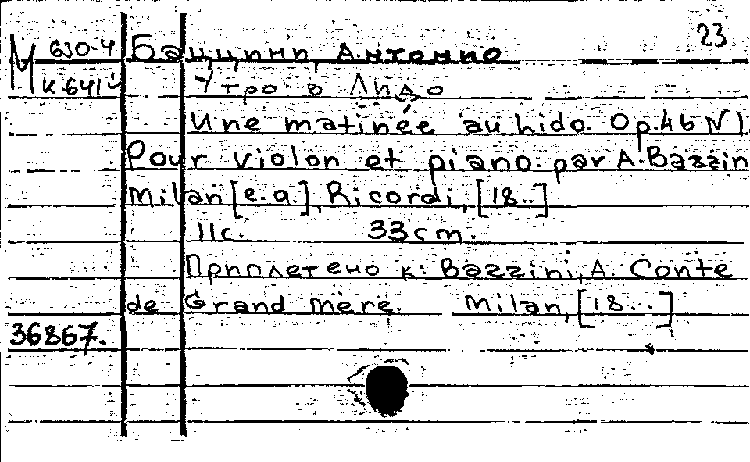 23
М 630-4 Баццини, Антонио
К-641 Утро в Лидо
Une matinée au Lido. Op.46 N1
Pour violon et piano. par A. Bazzin
Milan [e.a.], Ricordi, [18..]
11с. 33cm.
Приплетено к: Bazzini, A. Conte
de Grand mère. Milan, [18...]
36867.